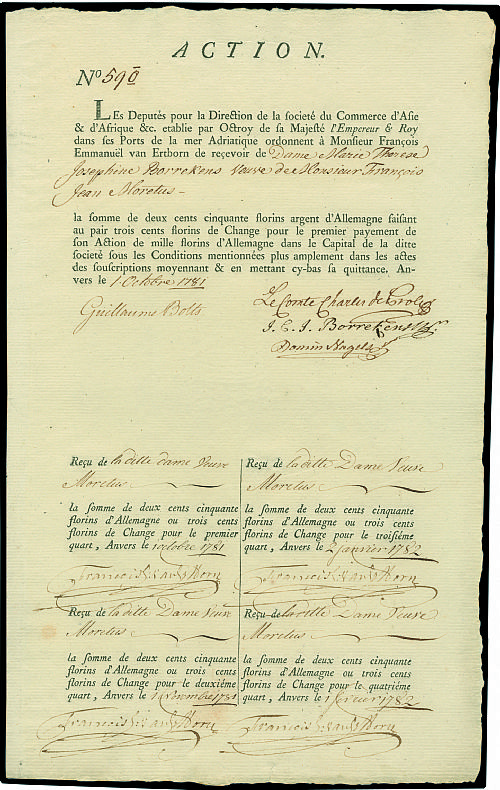 ACTION.
No 590
LEs Deputés pour la Direction de la societé du Commerce d'Asie
& d'Afrique &c. etablie par Octroy de sa Majesté l'Empereur & Roy
dans ses Ports de la mer Adriatique ordonnent à Monsieur François
Emmanuël van Ertborn de reçevoir de Dame Marie Therese
Josephine Borrekens Veuve de Monsieur François
Jean Moretus -
la somme de deux cents cinquante florins argent d'Allemagne faisant
au pair trois cents florins de Change pour le premier payement de
son Action de mille florins d'Allemagne dans le Capital de la ditte
societé sous les Conditions mentionnées plus amplement dans les actes
des souscriptions moyennant & en mettant cy-bas sa quittance. An-
vers le 1 Octobre 1781
Guillaume Bolts
Le Comte Charles de Proli
J. C. J. Borrekens
Domin Nagels
Reçu de la ditte dame Veuve
Moretus
la somme de deux cents cinquante
florins d'Allemagne ou trois cents
florins de Change pour le premier
quart, Anvers le 1 octobre 1781
François E. van Ertborn
Reçu de la ditte Dame Veuve
Moretus
la somme de deux cents cinquante
florins d'Allemagne ou trois cents
florins de Change pour le deuxiéme
quart, Anvers le 1 Novembre 1781
François E. van Ertborn
Reçu de la ditte Dame Veuve
Moretus
la somme de deux cents cinquante
florins d'Allemagne ou trois cents
florins de Change pour le troisiéme
quart, Anvers le 2 Janvier 1782
François E. van Ertborn
Reçu de la ditte Dame Veuve
Moretus
la somme de deux cents cinquante
florins d'Allemagne ou trois cents
florins de Change pour le quatriéme
quart, Anvers le 1 fevrier 1782
François E. van Ertborn